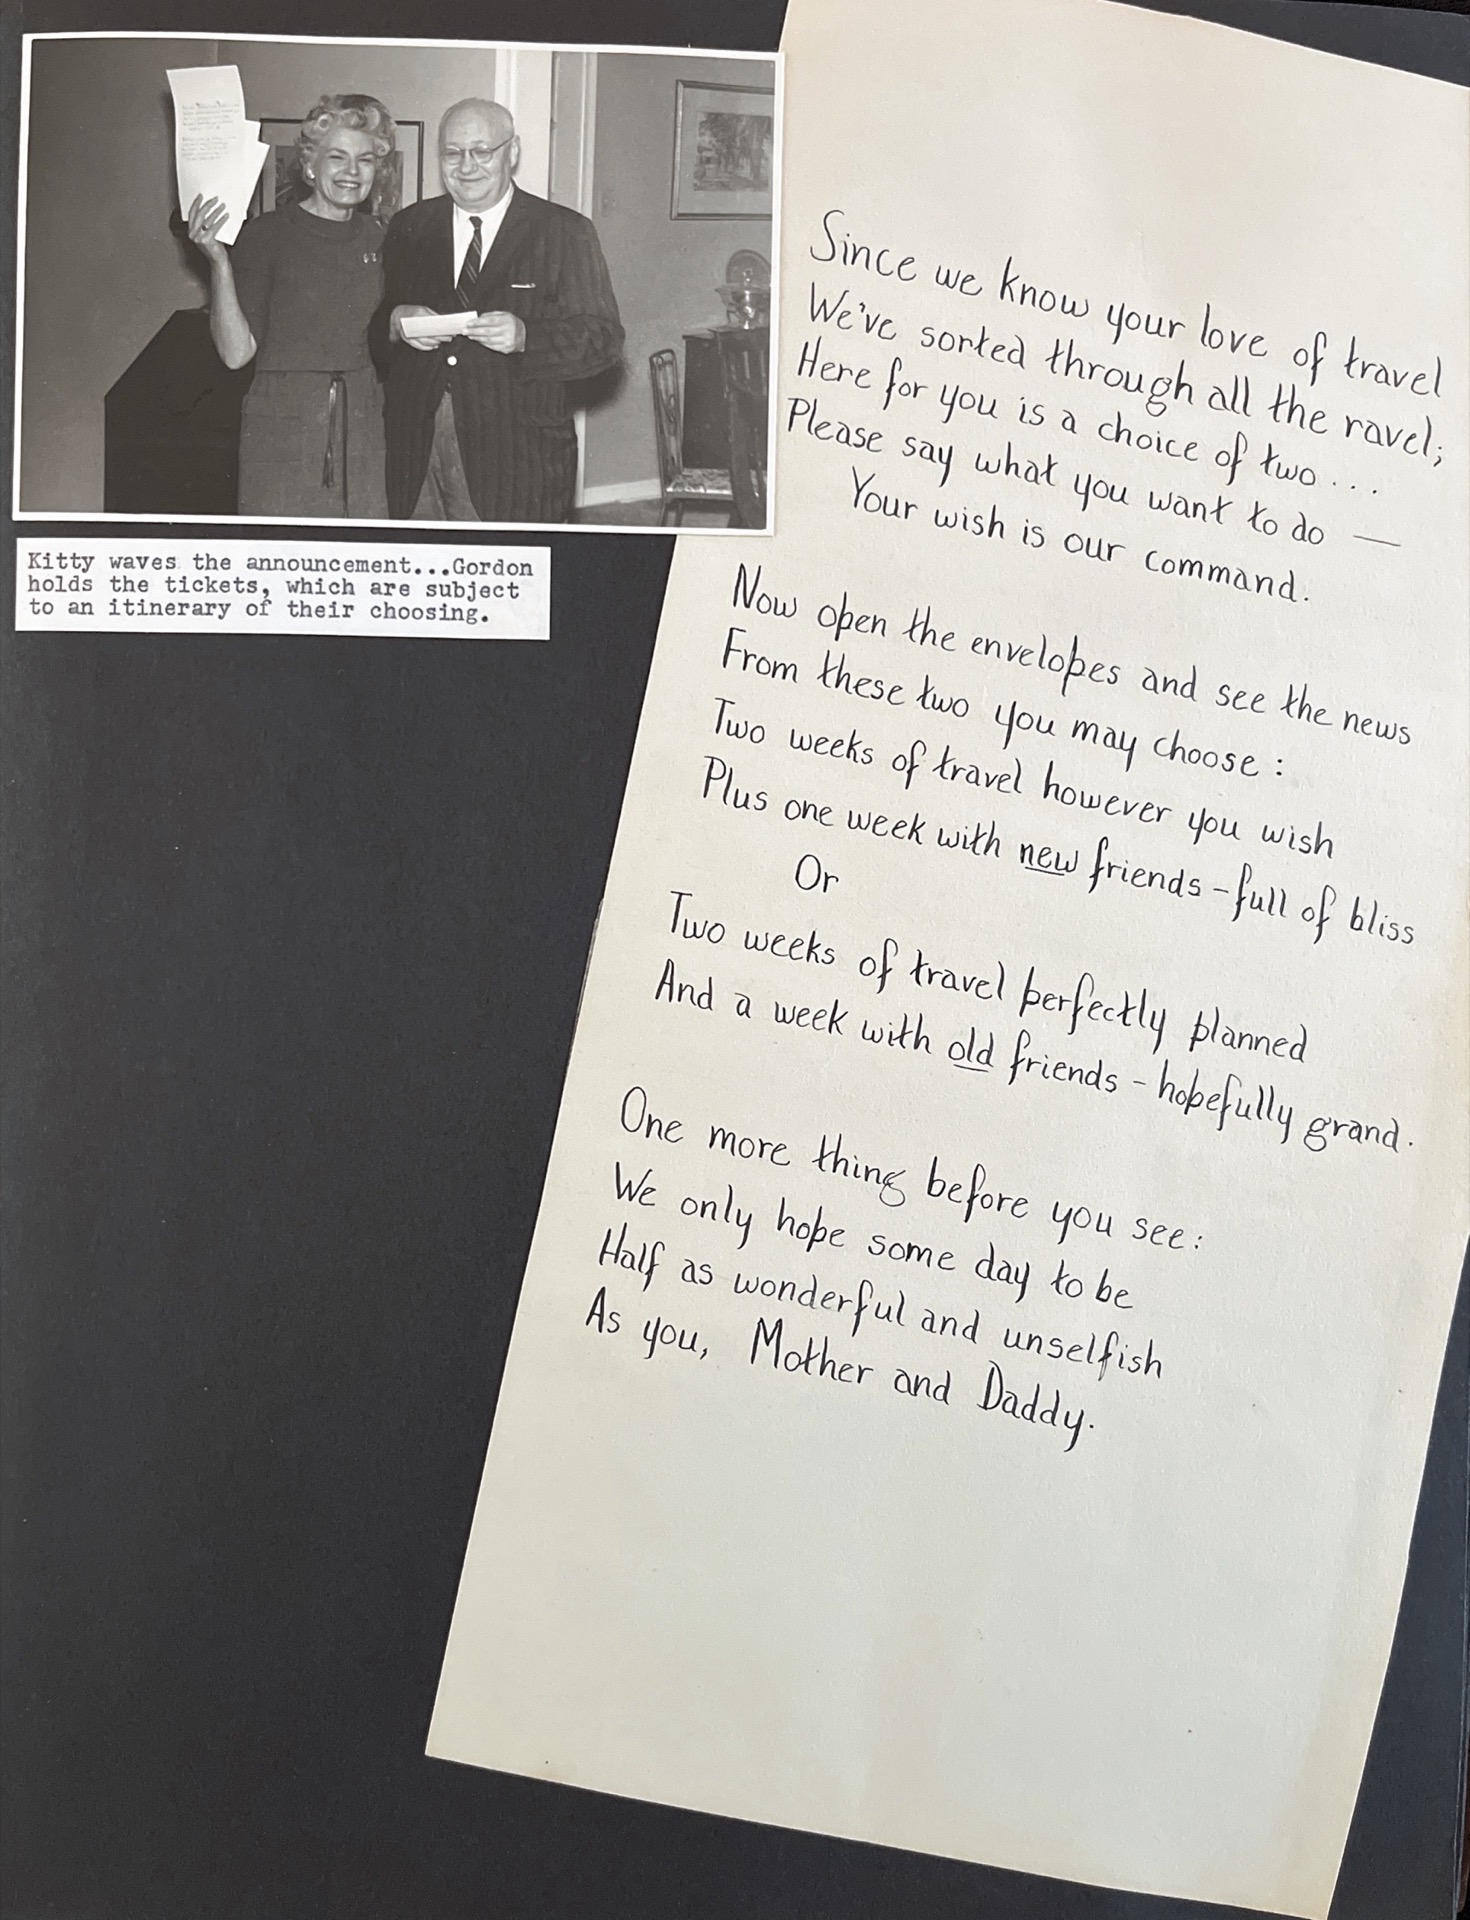 Kitty waves the announcement...Gordon
holds the tickets, which are subject
to an itinerary of their choosing.
Since we know your love of travel
We've sorted through all the ravel;
Here for you is a choice of two...
Please say what you want to do —
Your wish is our command.
Now open the envelopes and see the news
From these two you may choose:
Two weeks of travel however you wish
Plus one week with new friends - full of bliss
Or
Two weeks of travel perfectly planned
And a week with old friends - hopefully grand.
One more thing before you see:
We only hope some day to be
Half as wonderful and unselfish
As you, Mother and Daddy.